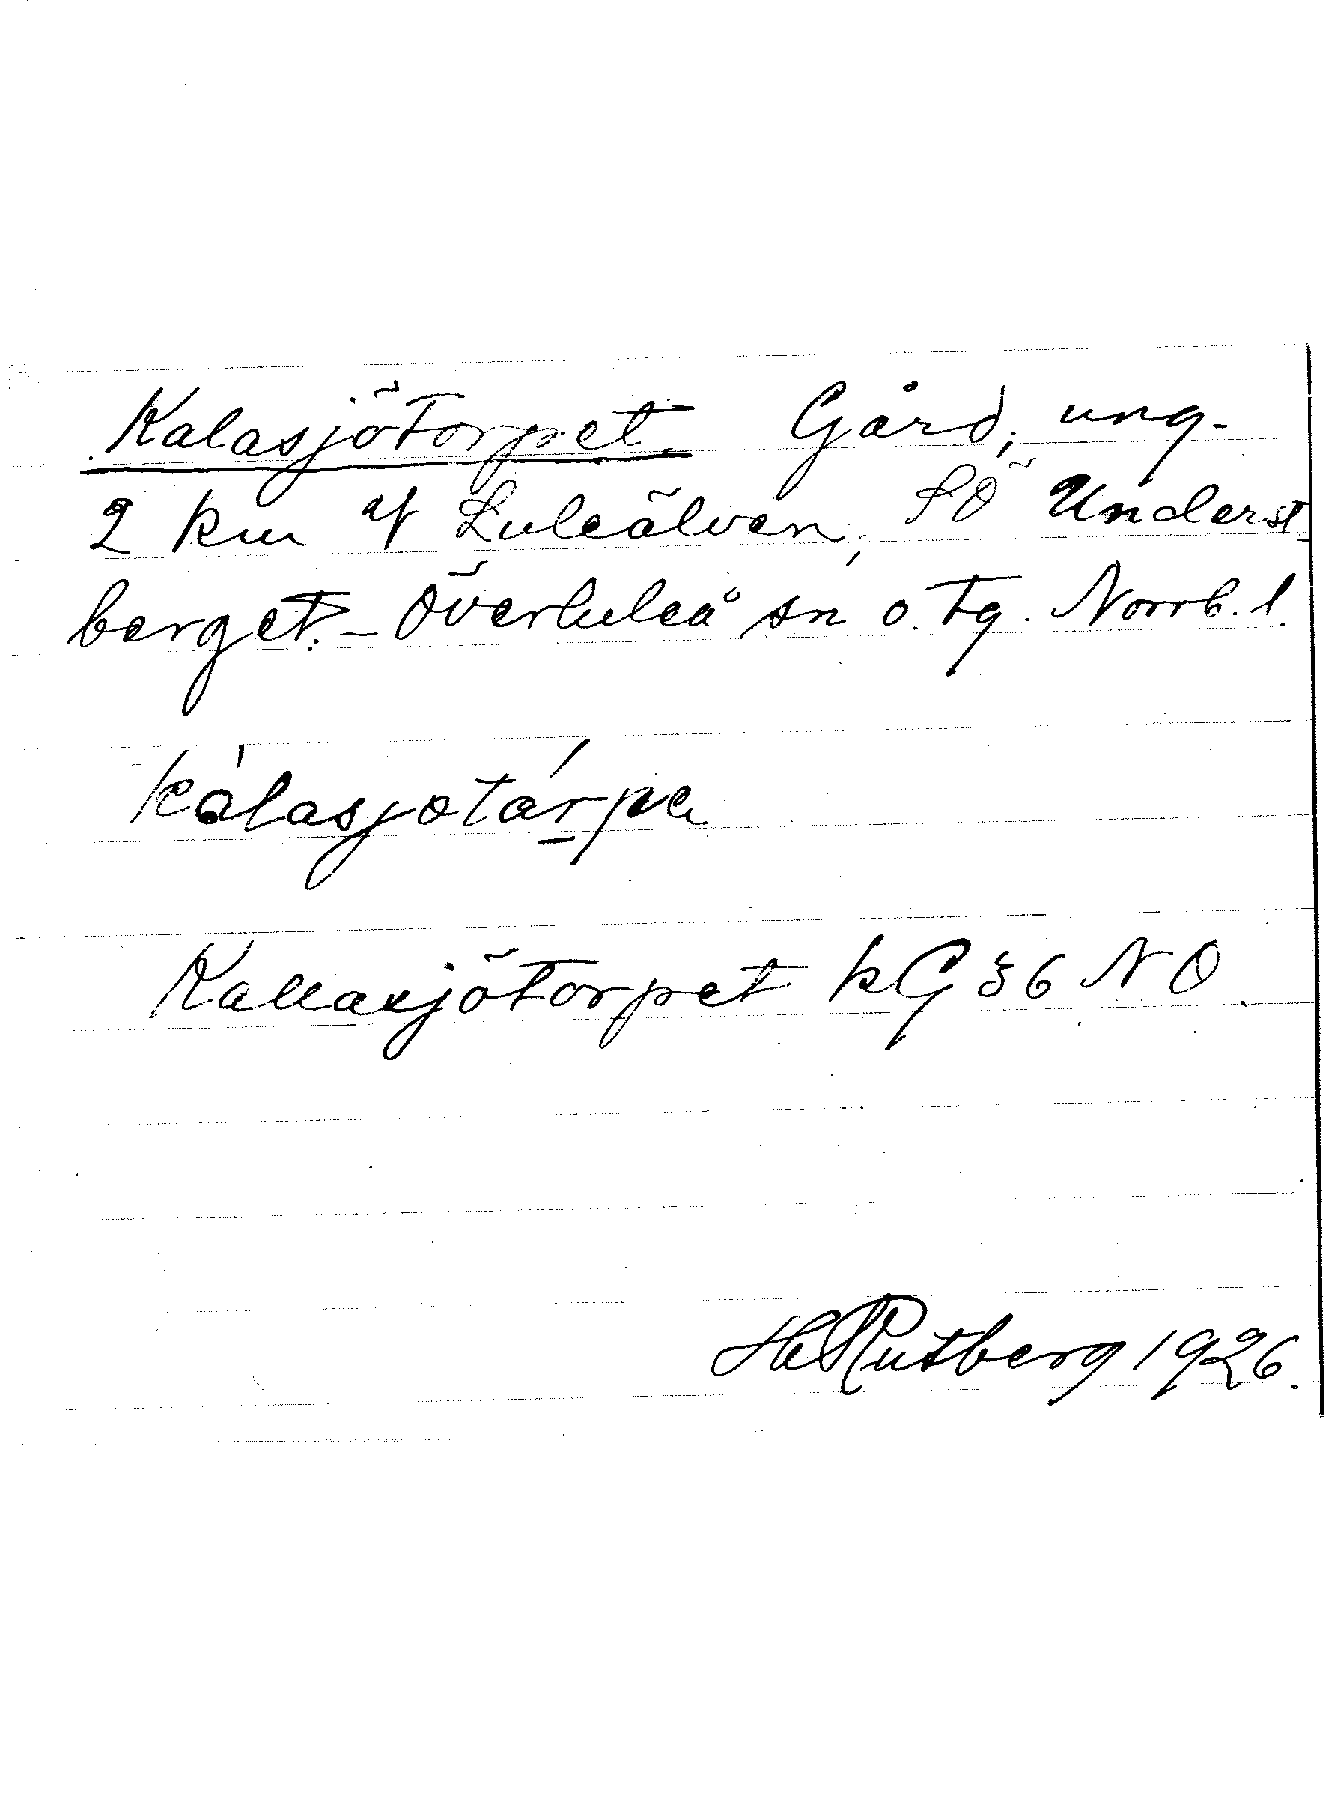 Kalasjötorpet. Gård, ung.
2 km af Luleälven, SÖ Underst
berget. – Överluleå sn o. tg. Norrb. l.
kálasjotárpa
Kallasjötorpet kG 36 NO
H Rutberg 1926.